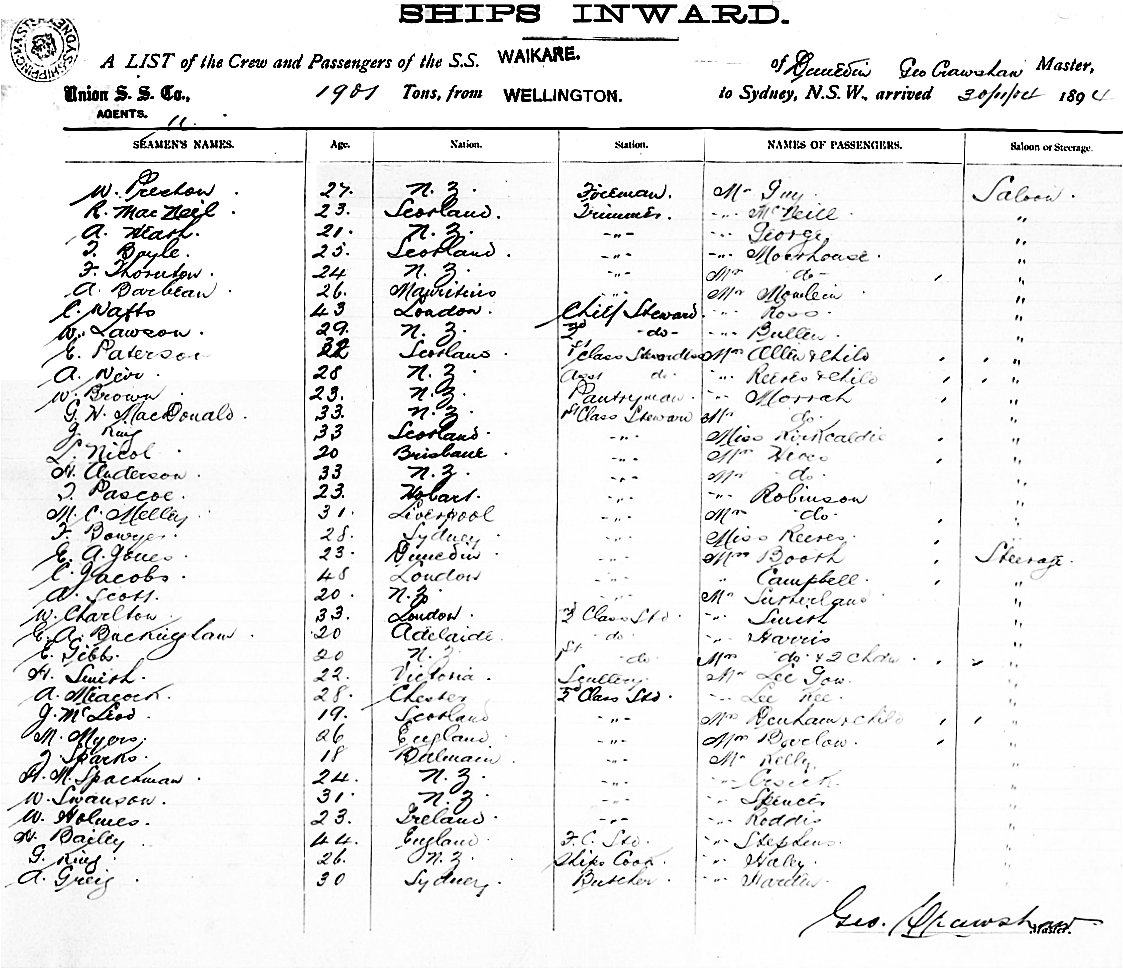 SHIPS INWARD.
A LIST of the Crew and Passengers of the S.S. WAIKARE. of Dunedin Geo Crawshaw Master,
Union S. S. Co., 1901 Tons, from WELLINGTON. to Sydney, N.S.W., arrived 30/11/04 1894
AGENTS.
SEAMEN'S NAMES. Age. Nation. Station. NAMES OF PASSENGERS. Saloon or Steerage.
W. Preston 27. N. Z. Fireman. Mr Guy Saloon.
R. MacNeil 23. Scotland. Trimmer. -"- McNeill "
A. Heath. 21. N. Z. -"- -"- George "
T. Boyle. 25. Scotland. -"- -"- Moorhouse. "
F. Thornton. 24 N. Z. -"- Mrs -do- "
A. Barbeau 26. Mauritius -"- Mr "
C. 43 London. Chief Steward. -"- Ross. "
W. Lawson. 29. N. Z. 2nd -do- -"- Bullen. "
E. Paterson Scotland 1st Class Stewardess Mrs Allen & Child "
A. Weir. 28 N. Z. Asst do. -"- Reeves & Child "
W. Brown 23. N. Z. Pantryman. -"- Morrah "
G. W. MacDonald. 33. N. Z. 1st Class Steward Mr do. "
J. King 33 Scotland. -"- Miss Kirkcaldie "
Nicol 20 Brisbane -"- Mrs "
H. Anderson 33 N. Z. -"- Mr do. "
T. Pascoe. 23. Hobart. -"- -"- Robinson "
M. C. Melley 31. Liverpool -"- Mrs do. "
F. Bowyer. 28. Sydney -"- Miss Reeves. "
E. A. Jones. 23. Dunedin -"- Mrs Booth Steerage.
C. Jacobs. 48 London -"- " Campbell. "
A. Scott. 20. N. Z. -"- Mr Sutherland "
W. Charlton 33. London. 2nd Class Std. -"- Smith "
E. A. Buckingham 20 Adelaide. do. -"- Harris "
E. Gibbs. 20 N. Z. 1st do. Mrs do & 2 Chdn "
H. Smith. 22. Victoria Scullery Mr Lee Gow. "
A. Meacock. 28. Chester 2nd Class Std. -"- Lee Kee. "
J. McLeod. 19. Scotland -"- Mrs Denham & Child "
M. Myers. 26 England. -"- Mrs "
J. Sparks. 18 Balmain. -"- Mr Kelly. "
H. M. Spackman 24. N. Z. -"- -"- "
W. Swanson. 31. N. Z. -"- -"- Spencer "
W. Holmes. 23. Ireland. -"- -"- Roddis "
H. Bailey 44. England. F. C. Std. -"- Stephens. "
G. King. 26. N. Z. Ships Cook -"- Haley. "
A. Greig. 30 Sydney. Butcher -"- "
Geo. Crawshaw
Master.